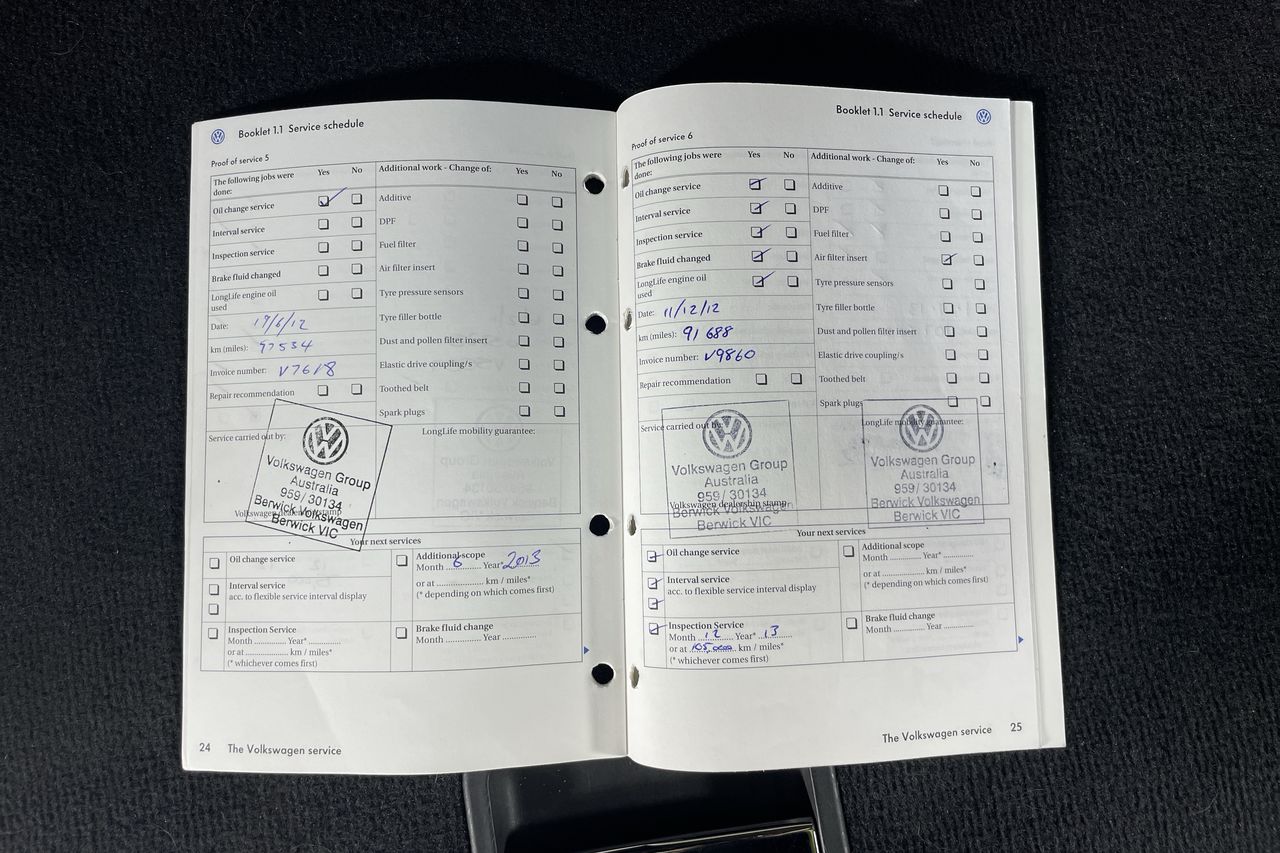 Booklet 1.1 Service schedule
Proof of service 5
The following jobs were done: Yes No
Oil change service
Interval service
Inspection service
Brake fluid changed
LongLife engine oil used
Date: 17/6/12
km (miles):
Invoice number: V7618
Repair recommendation
Additional work - Change of: Yes No
Additive
DPF
Fuel filter
Air filter insert
Tyre pressure sensors
Tyre filler bottle
Dust and pollen filter insert
Elastic drive coupling/s
Toothed belt
Spark plugs
Service carried out by:
LongLife mobility guarantee:
Volkswagen Group
Australia
959/ 30134
Berwick Volkswagen
Berwick VIC
Your next services
Oil change service
Interval service
acc. to flexible service interval display
Inspection Service
Month ............ Year* ............
or at ................ km / miles*
(* whichever comes first)
Additional scope
Month 6 Year* 2013
or at ................ km / miles*
(* depending on which comes first)
Brake fluid change
Month ............ Year ............
24 The Volkswagen service
Booklet 1.1 Service schedule
Proof of service 6
The following jobs were done: Yes No
Oil change service
Interval service
Inspection service
Brake fluid changed
LongLife engine oil used
Date: 11/12/12
km (miles): 91 688
Invoice number: V9860
Repair recommendation
Additional work - Change of: Yes No
Additive
DPF
Fuel filter
Air filter insert
Tyre pressure sensors
Tyre filler bottle
Dust and pollen filter insert
Elastic drive coupling/s
Toothed belt
Spark plugs
Service carried out by:
LongLife mobility guarantee:
Volkswagen Group
Australia
959/ 30134
Berwick Volkswagen
Berwick VIC
Volkswagen dealership stamp
Volkswagen Group
Australia
959/ 30134
Berwick Volkswagen
Berwick VIC
Your next services
Oil change service
Interval service
acc. to flexible service interval display
Inspection Service
Month 12 Year* 13
or at 105,000 km / miles*
(* whichever comes first)
Additional scope
Month ............ Year* ............
or at ................ km / miles*
(* depending on which comes first)
Brake fluid change
Month ............ Year ............
The Volkswagen service 25